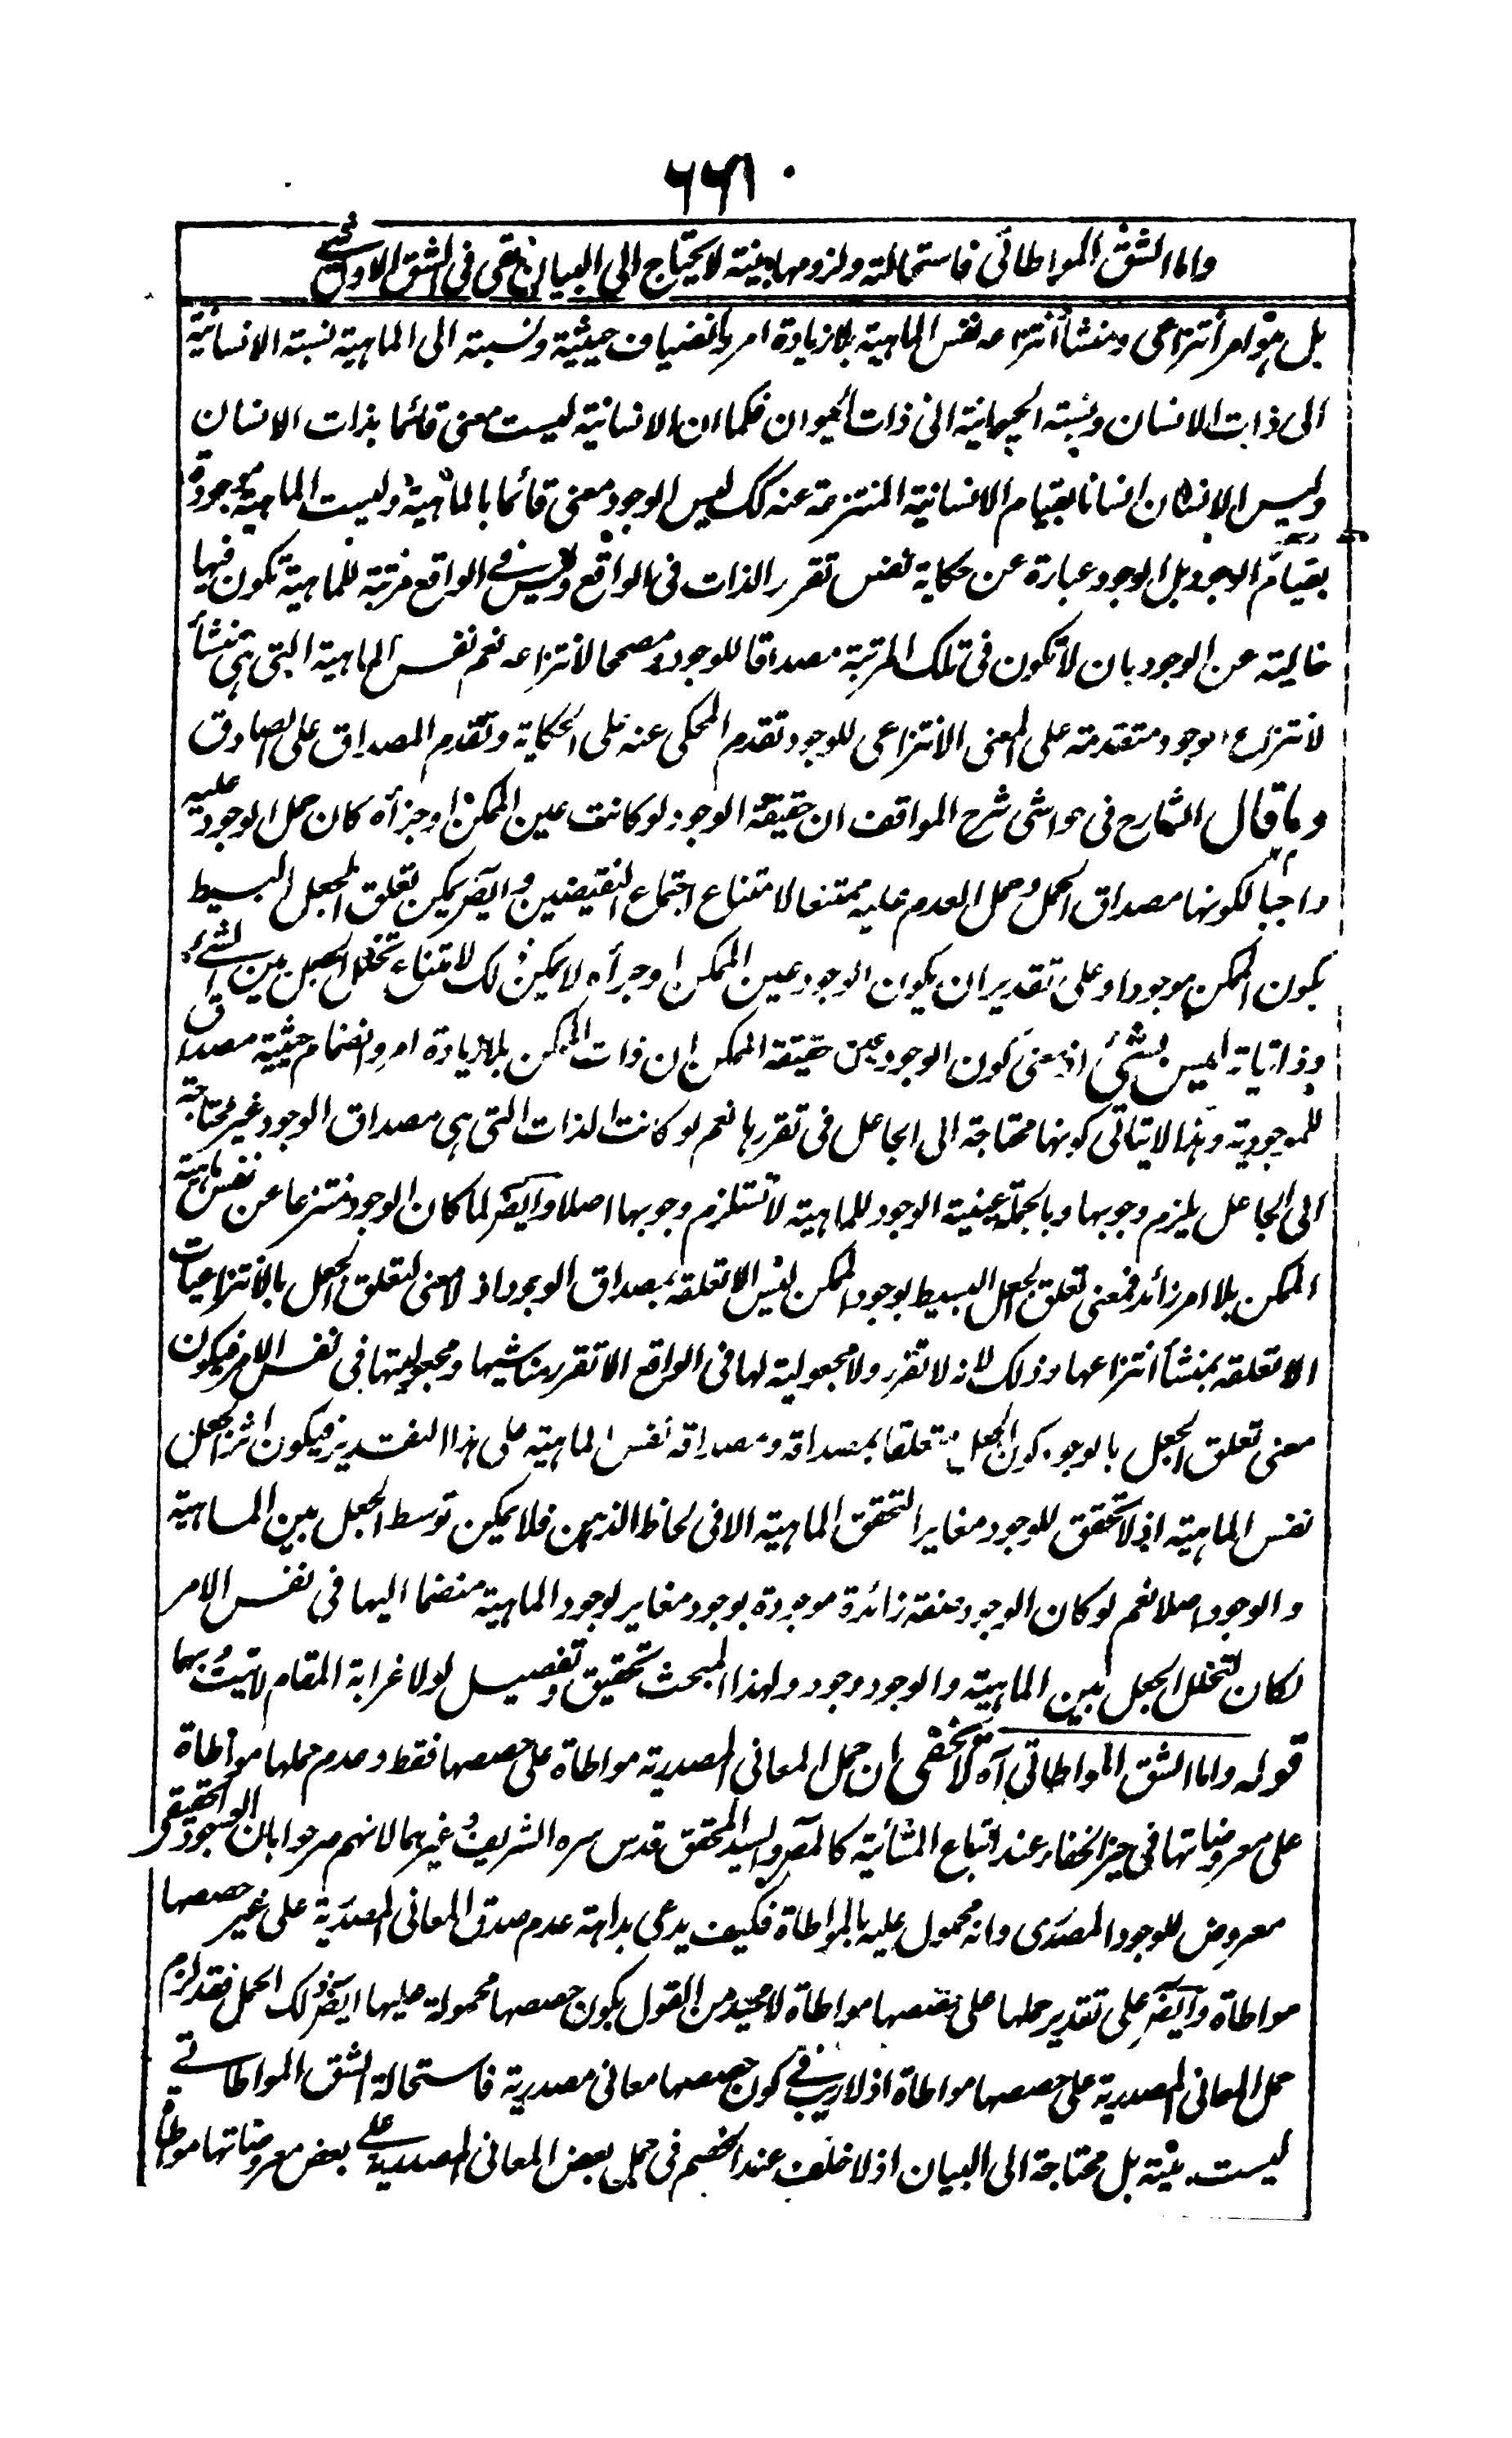 ٢٢١
واما الشق المواطاتي فاستحالته ولزومها بينة لا يحتاج الى البيان بقى في الشق الاول شئ
بل هو امر انتزاعى ومنشأ انتزاعه نفس الماهية بلا زيادة امر وانضياف حيثية ونسبته الى الماهية نسبة الانسانية
الى ذات الانسان ونسبته الحيوانية الى ذات الحيوان فكما ان الانسانية ليست معنى قائما بذات الانسان
وليس الانسان انسانا بقيام الانسانية المنتزعة عنه كك ليس الوجود معنى قائما بالماهية وليست الماهية موجودة
بقيام الوجود بل الوجود عبارة عن حكاية نفس تقرر الذات فى الواقع وليس فے الواقع مرتبة للماهية تكون فيها
خالية عن الوجود بان لا تكون فى تلك المرتبة مصداقا للوجود ومصححا لانتزاعه نعم نفس الماهية التى هى منشأ
لانتزاع الوجود متقدمة على المعنى الانتزاعى للوجود تقدم المحكى عنه على الحكاية وتقدم المصداق على الصادق
وما قال الشارح فى حواشى شرح المواقف ان حقيقة الوجود لو كانت عين الممكن او جزأه كان حمل الوجود عليه
واجبا لكونها مصداق الحمل وحمل العدم عليه ممتنعا لامتناع اجتماع النقيضين وايضا يمكن تعلق الجعل البسيط
بكون الممكن موجودا وعلى تقدير ان يكون الوجود عين الممكن او جزأه لا يمكن ذلك لامتناع تخلل الجعل بين الشئ
وذاتياته ليس بشئ اذ معنى كون الوجود عين حقيقة الممكن ان ذات الممكن بلا زيادة امر وانضمام حيثية مصداق
للموجودية وهذا لا ينافى كونها محتاجة الى الجاعل فى تقررها نعم لو كانت الذات التى هى مصداق الوجود غير محتاجة
الى الجاعل يلزم وجوبها وبالجملة عينية الوجود للماهية لا تستلزم وجوبها اصلا وايضا لما كان الوجود منتزعا عن نفس ماهية
الممكن بلا امر زائد فمعنى تعلق الجعل البسيط بوجود الممكن ليس الا تعلقه بمصداق الوجود اذ لا معنى لتعلق الجعل بالانتزاعيات
الا تعلقه بمنشأ انتزاعها وذلك لانه لا تقرر ولا مجعولية لها فى الواقع الا تقرر مناشيها ومجعوليتها فى نفس الامر فيكون
معنى تعلق الجعل بالوجود كون الجعل متعلقا بمصداقه ومصداقه نفس الماهية على هذا التقدير فيكون اثر الجعل
نفس الماهية اذ لا تحقق للوجود مغايرا لتحقق الماهية الا فى لحاظ الذهن فلا يمكن توسط الجعل بين الماهية
والوجود اصلا نعم لو كان الوجود صفة زائدة موجودة بوجود مغاير لوجود الماهية منضما اليها فى نفس الامر
لكان لتخلل الجعل بين الماهية والوجود وجود ولهذا المبحث تحقيق وتفصيل لولا غرابة المقام لاتيت بهما
قوله واما الشق المواطاتى آه لا يخفى ان حمل المعانى المصدرية مواطاة على حصصها فقط وعدم حملها مواطاة
على معروضاتها فى حيز الخفاء عند اتباع المشائية كالمصر والسيد المحقق قدس سره الشريف وغيرهما لانهم صرحوا بان الوجود الحقيقى
معروض للوجود المصدرى وانه محمول عليه بالمواطاة فكيف يدعى بداهة عدم صدق المعانى المصدرية على غير حصصها
مواطاة وايضا على تقدير حملها على حصصها مواطاة لا محيد من القول بكون حصصها محمولة عليها ايضا ذلك الحمل فقد لزم
حمل المعانى المصدرية على حصصها مواطاة اذ لا ريب فے كون حصصها معانى مصدرية فاستحالة الشق المواطاتے
ليست بينة بل محتاجة الى البيان اذ لا خلف عند الخصم فى حمل بعض المعانى المصدرية على بعض معروضاتها مواطاة